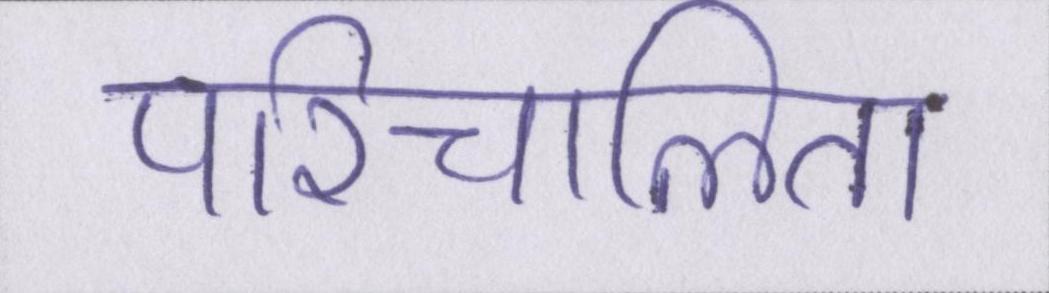 परिचालिता